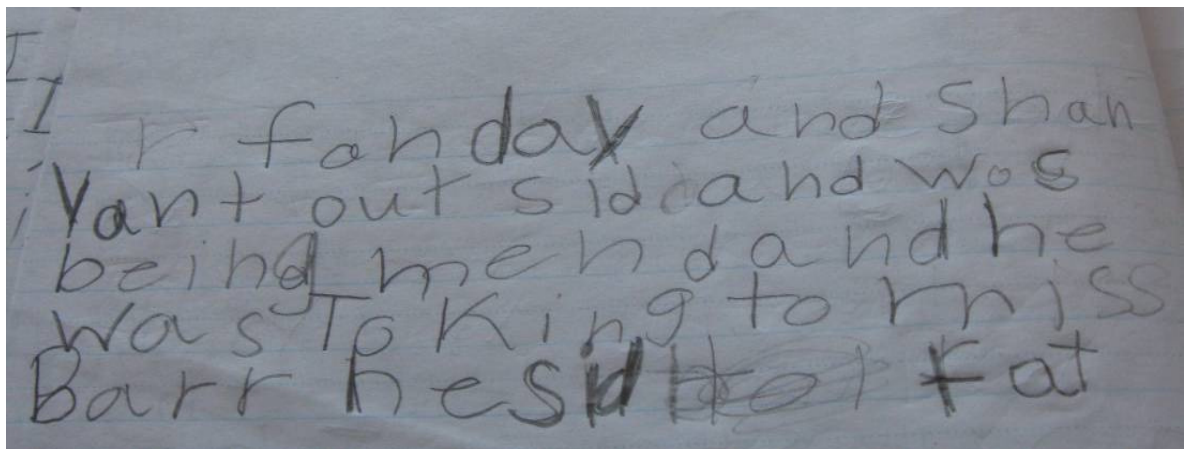 r fonday and Shan
Vant out sid and wos
being mend and he
was Toking to miss
Barr he sid fat